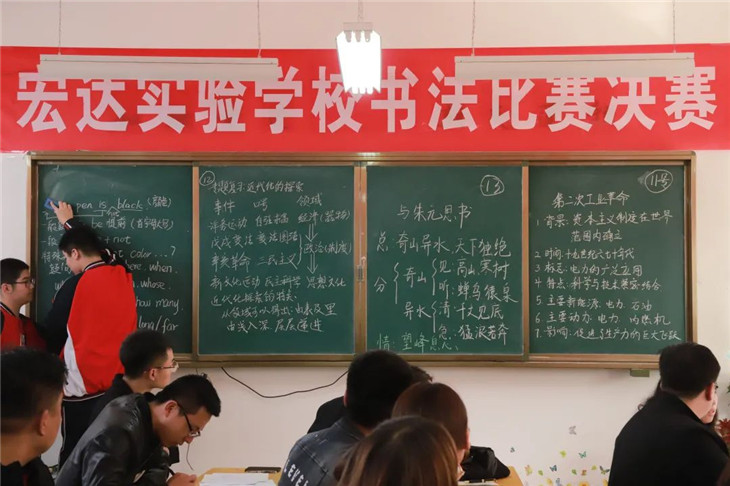 宏达实验学校书法比赛决赛
pen is black
be
not
color...?
where when
whose
how many
long/far
12
专题复习 近代化的探索
事件 口号 领域
洋务运动 自强 求富 经济(器物)
戊戌变法
辛亥革命 三民主义 政治(制度)
新文化运动 民主科学 思想文化
由浅入深 层层递进
13
与朱元思书
总: 奇山异水 天下独绝
分 奇山 见: 高山 寒树
听: 蝉鸟猿泉
异水 清: 千丈见底
急: 猛浪若奔
情: 望峰息心
11号
第二次工业革命
1. 背景: 资本主义制度在世界
范围内确立
2. 时间: 十九世纪六七十年代
3. 标志: 电力的广泛应用
4. 特点: 科学与技术紧密结合
5. 主要新能源: 电力、石油
6. 主要动力: 电力、内燃机
7. 影响: 促进了生产力的巨大飞跃